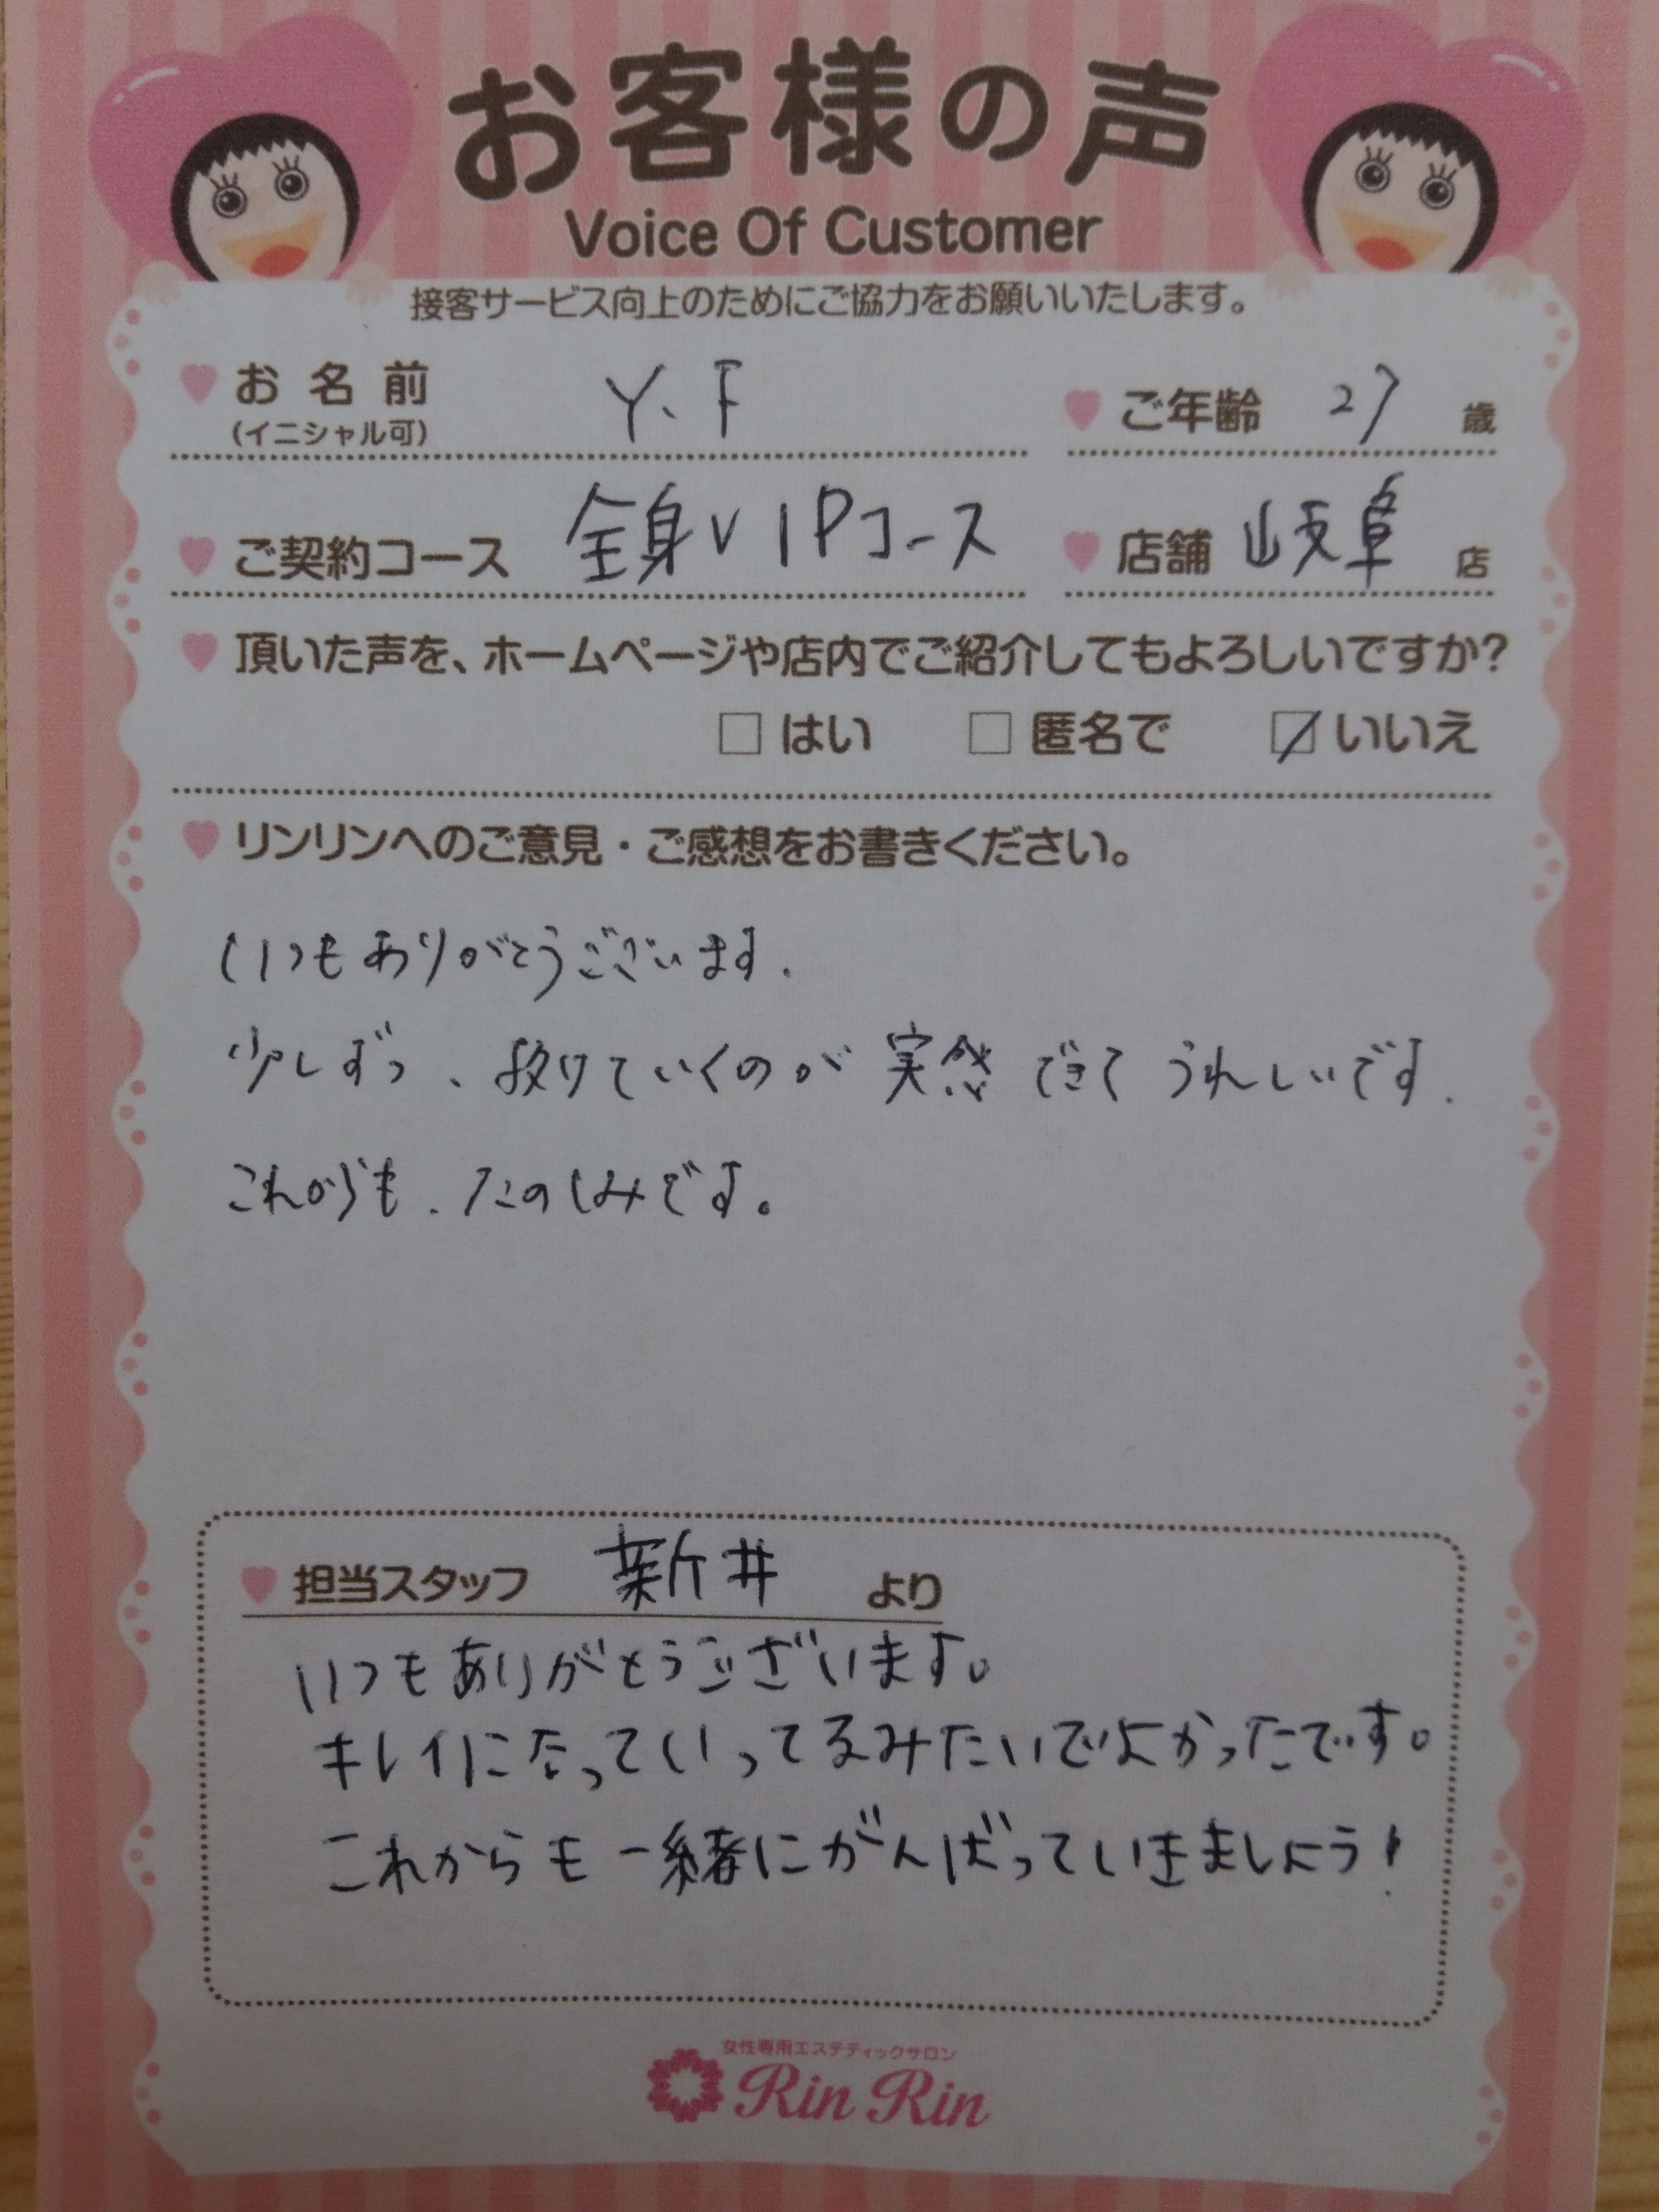 お客様の声
Voice Of Customer
接客サービス向上のためにご協力をお願いいたします。
お名前 Y.F ご年齢 27 歳
(イニシャル可)
ご契約コース 全身VIPコース 店舗 岐阜 店
頂いた声を、ホームページや店内でご紹介してもよろしいですか?
はい 匿名で いいえ
リンリンへのご意見・ご感想をお書きください。
いつもありがとうございます.
少しずつ、抜けていくのが実感できてうれしいです.
これからも、たのしみです。
担当スタッフ 新井 より
いつもありがとうございます。
キレイになっていってるみたいでよかったです。
これからも一緒にがんばっていきましょう!
女性専用エステティックサロン
Rin Rin